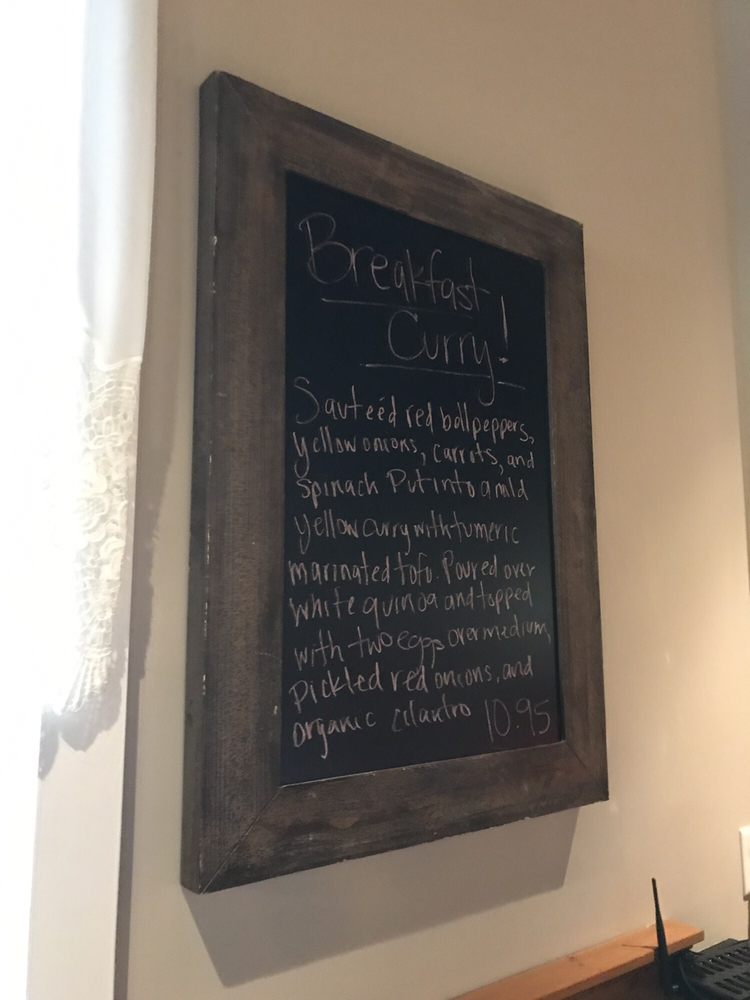 Breakfast
Curry!
Sauteéd red bellpeppers,
yellow onions, carrots, and
spinach Put into a mild
yellow curry with tumeric
marinated tofu. Poured over
white quinoa and topped
with two eggs over medium,
Pickled red onions, and
organic cilantro 10.95